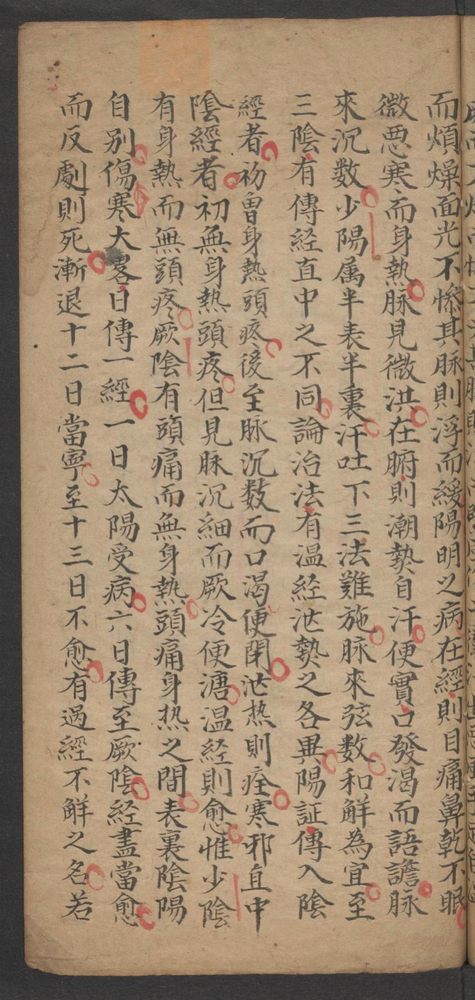 而煩燥面光不慘其脉則浮而緩陽明之病在經則目痛鼻乾不眠
微惡寒而身熱脉見微洪在腑則潮𤍠自汗便實口發渴而語譫脉
來沉數少陽属半表半裏汗吐下三法難施脉來弦数和觧為宜至
三陰有傳經直中之不同論治法有温經泄𤍠之各異陽証傳入陰
經者初曽身熱頭疼後至脉沉数而口渴便閉泄热則痊寒邪直中
陰經者初無身熱頭疼但見脉沉細而厥冷便溏温経則愈惟少陰
有身熱而無頭疼厥陰有頭痛而無身熱頭痛身热之間表裏陰陽
自别傷寒大畧日傳一經一日太陽受病六日傳至厥陰經盡當愈
而反劇則死漸退十二日當寧至十三日不愈有過經不觧之名若